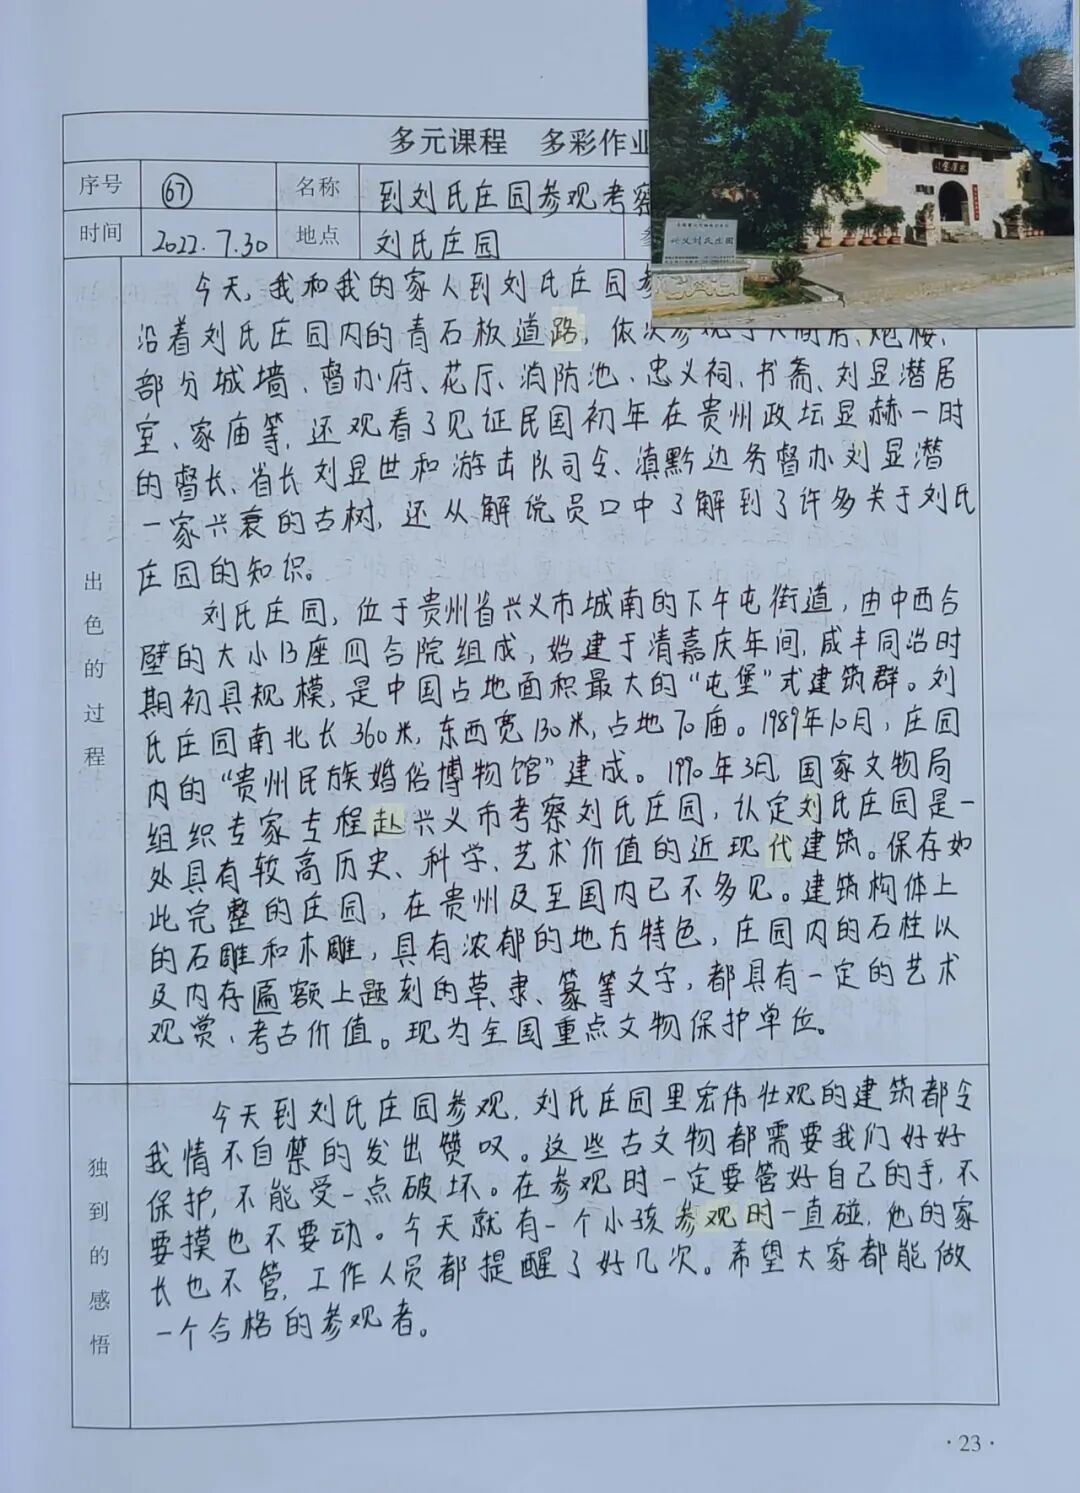 多元课程 多彩作业
序号 67 名称 到刘氏庄园参观考察
时间 2022.7.30 地点 刘氏庄园
兴义刘氏庄园
今天,我和我的家人到刘氏庄园参
沿着刘氏庄园内的青石板道路,依次参观了大闸居、炮楼、
部分城墙、督办府、花厅、消防池、忠义祠、书斋、刘显潜居
室、家庙等,还观看了见证民国初年在贵州政坛显赫一时
的督长、省长刘显世和游击队司令、滇黔边务督办刘显潜
一家兴衰的古树,还从解说员口中了解到了许多关于刘氏
庄园的知识。
刘氏庄园,位于贵州省兴义市城南的下午屯街道,由中西合
壁的大小13座四合院组成,始建于清嘉庆年间,咸丰同治时
期初具规模,是中国占地面积最大的“屯堡”式建筑群。刘
氏庄园南北长360米,东西宽130米,占地70亩。1989年10月,庄园
内的“贵州民族婚俗博物馆”建成。1990年3月,国家文物局
组织专家专程赴兴义市考察刘氏庄园,认定刘氏庄园是一
处具有较高历史、科学、艺术价值的近现代建筑。保存如
此完整的庄园,在贵州及至国内已不多见。建筑构体上
的石雕和木雕,具有浓郁的地方特色,庄园内的石柱以
及内存匾额上题刻的草、隶、篆等文字,都具有一定的艺术
观赏、考古价值。现为全国重点文物保护单位。
出色的过程
今天到刘氏庄园参观,刘氏庄园里宏伟壮观的建筑都令
我情不自禁的发出赞叹。这些古文物都需要我们好好
保护,不能受一点破坏。在参观时一定要管好自己的手,不
要摸也不要动。今天就有一个小孩参观时一直碰,他的家
长也不管,工作人员都提醒了好几次。希望大家都能做
一个合格的参观者。
独到的感悟
·23·